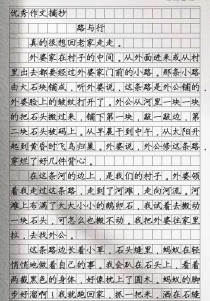 优秀作文摘抄
路与行
真的很想回老家走走。
外婆家在村子的中间，从外面进来或从村
里出去都要经过外婆家门前的小路，那条小路
由大石块铺成，听外婆说，这条路是外公铺的，
外婆脸上的皱纹打开了，外公从河里一块一块
的把石头搬过来，铺下第一块，敲一敲边，第
二块石头被码上。从早晨干到中午，从太阳升
起到黄昏时飞鸟归巢。外婆说，外公修这条路，
穿烂了好几件背心。
在这条河的边上，是我们的村子，外婆领
着我走过这条路，走到了河滩，走向河流。河
滩上布满了大大小小的鹅卵石，我试着去搬动
一块石头，可怎么也搬不动，我把外婆往家里
拉，去找外公。
这条路边长着小草，石头缝里，蚂蚁在轻
悄悄地做着自己的事，我会趴在石头上，看着
两截黑色的身体，好像枕上了圆木，蚂蚁的脚
步好溜啊！我就跑回家，抓一把米，洒在石缝